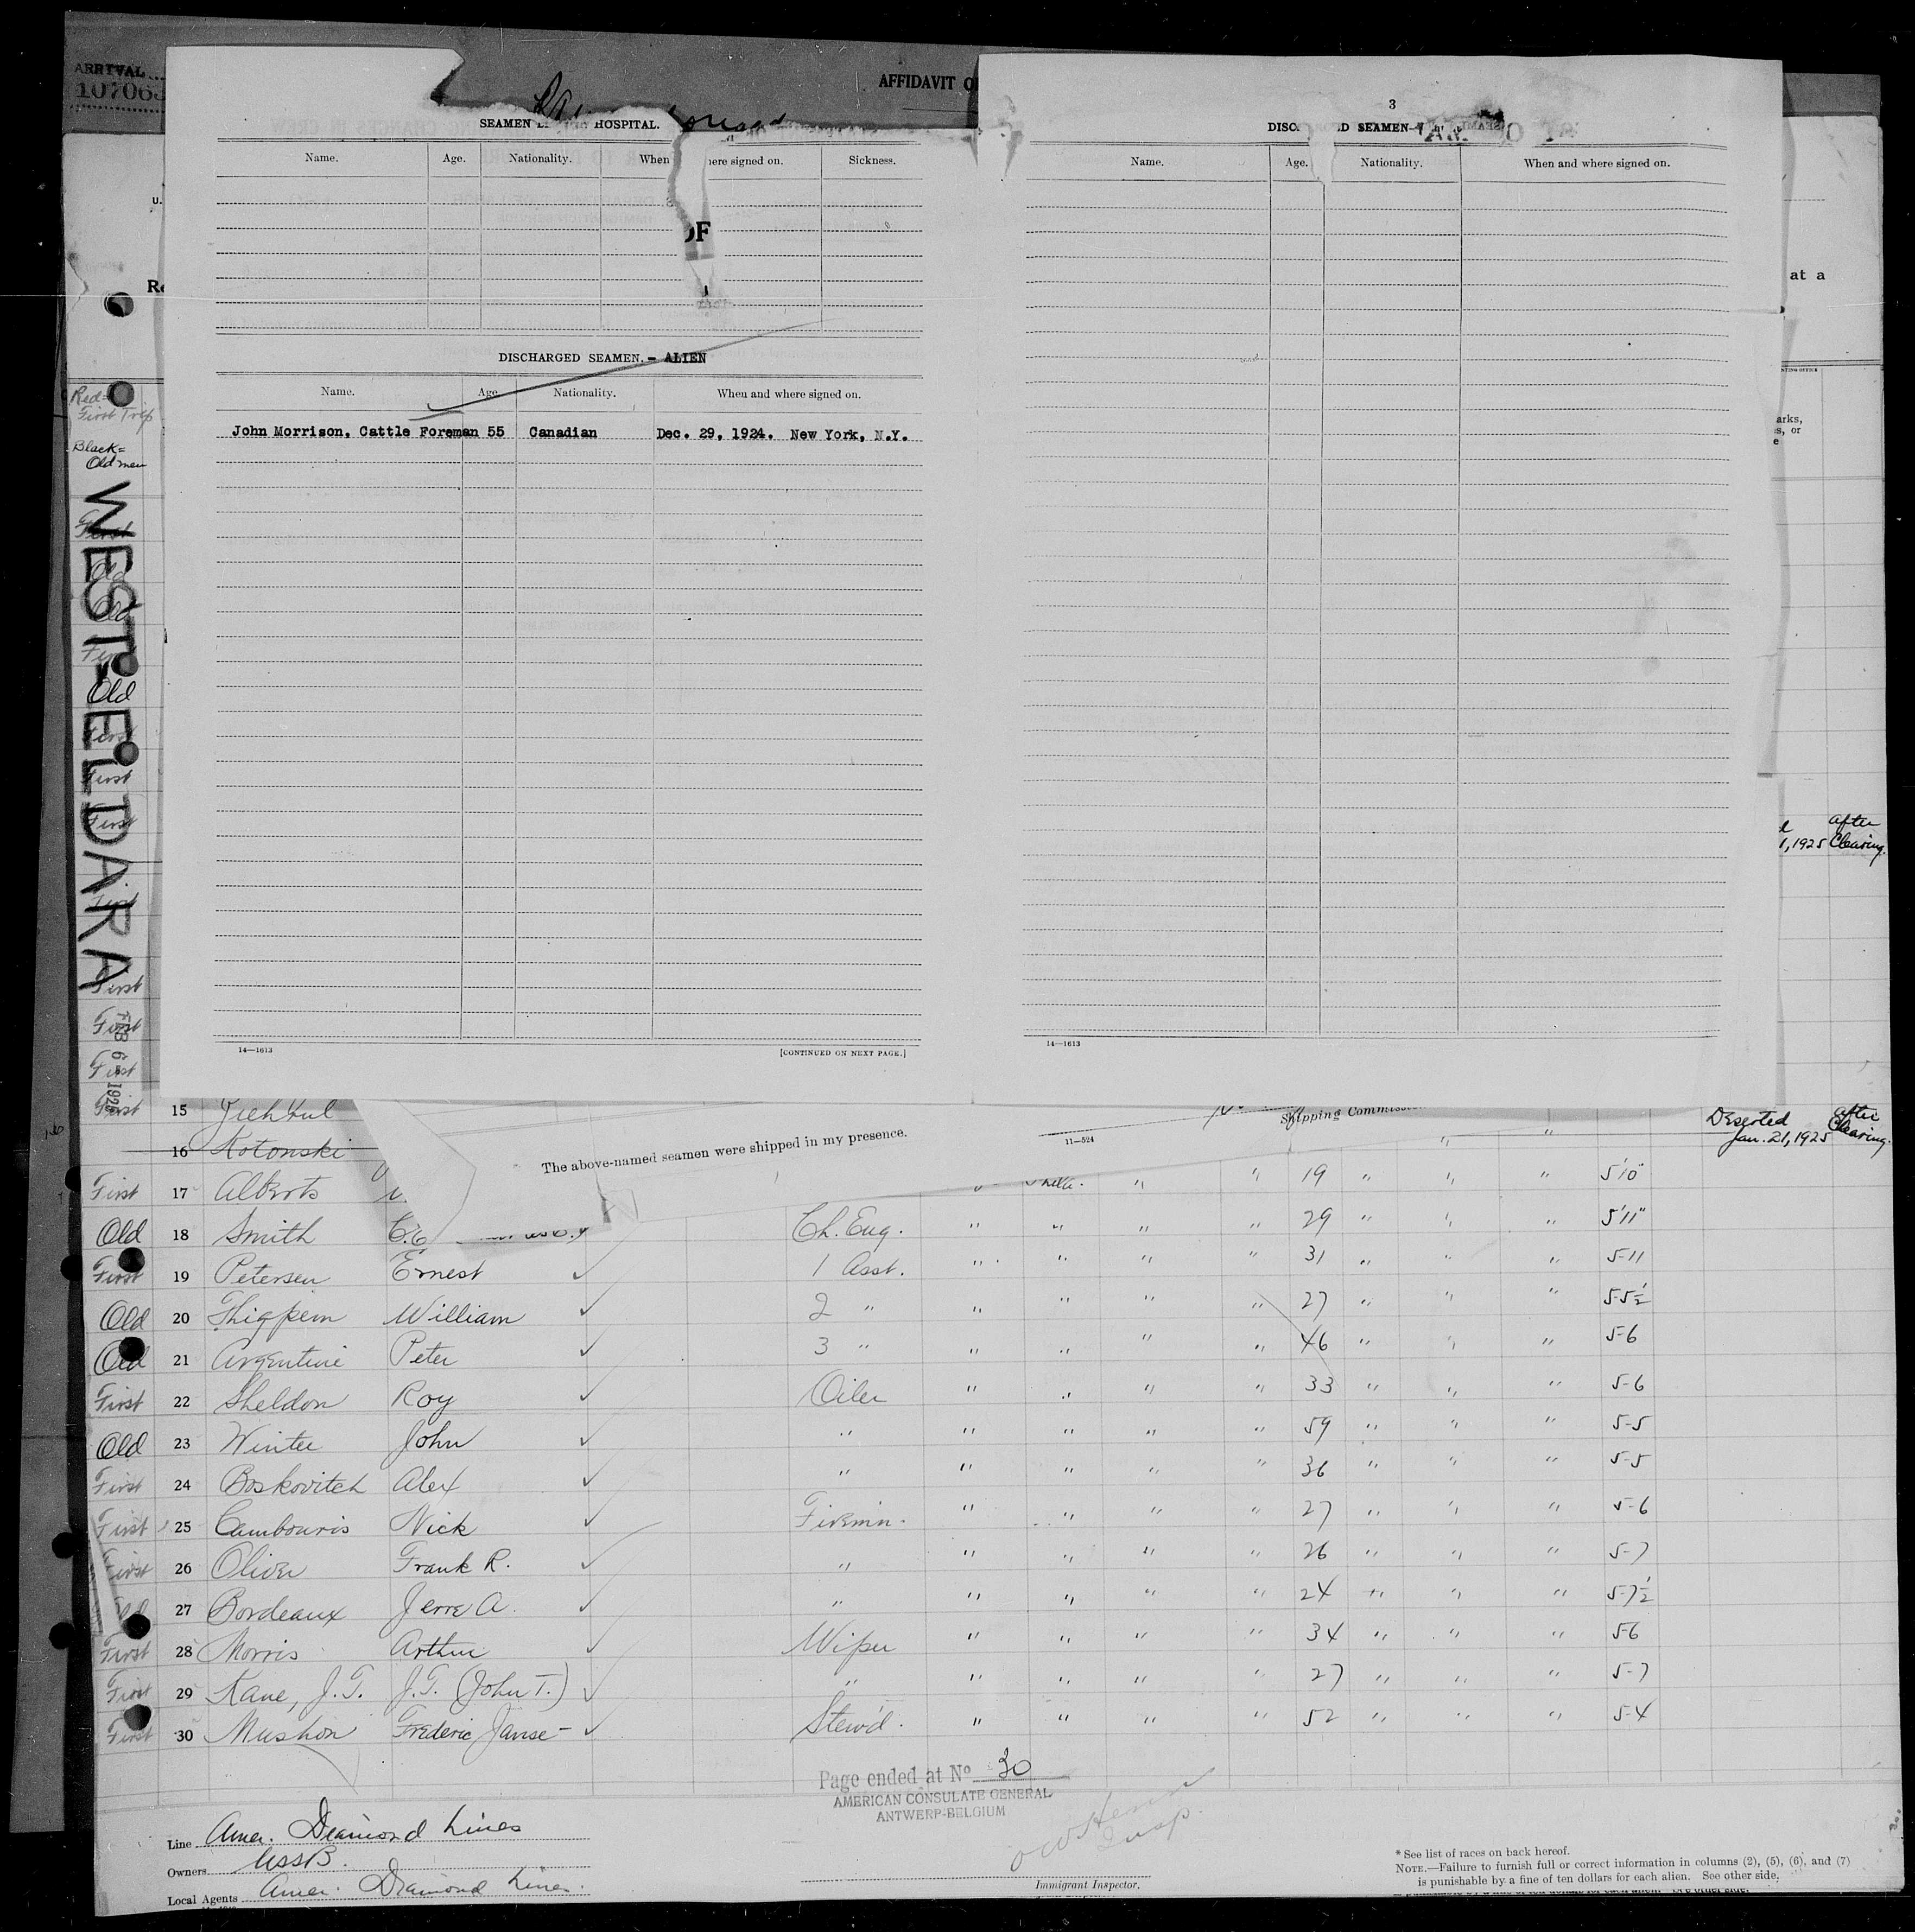 ARRIVAL
107063
AFFIDAVIT O
SEAMEN HOSPITAL.
Name. Age. Nationality. When ere signed on. Sickness.
OF
DISCHARGED SEAMEN.- ALIEN
Name. Age Nationality. When and where signed on.
John Morrison, Cattle Foreman 55 Canadian Dec. 29, 1924. New York, N.Y.
14—1613 [CONTINUED ON NEXT PAGE.]
3
DISC D SEAMEN
Name. Age. Nationality. When and where signed on.
14—1613
U.
Re
at a
arks,
s, or
e
Red=
First Trip
Black=
Old men
WEST ELDARA
First
Old
Old
First
Old
First
First
First
First
First
First
First
FEB 6 - 1925
1, 1925 after Clearing.
The above-named seamen were shipped in my presence.
11—524
Shipping Commiss
First 15
16 Kotonski " " Deserted Jan. 21, 1925 after Clearing.
First 17 Alberts " Phila. " " 19 " " " 5'10"
Old 18 Smith C.C Ch. Eng. " " " " 29 " " " 5'11"
First 19 Petersen Ernest ✓ 1 Asst. " " " " 31 " " " 5-11
Old 20 Thigpem William ✓ 2 " " " " " 27 " " " 5-5½
Old 21 Argentine Peter ✓ 3 " " " " " 46 " " " 5-6
First 22 Sheldon Roy ✓ Oiler " " " " 33 " " " 5-6
Old 23 Winter John ✓ " " " " " 59 " " " 5-5
First 24 Boskovitch Alex ✓ " " " " " 36 " " " 5-5
First 25 Cambouris Nick ✓ Firemn. " " " " 27 " " " 5-6
First 26 Oliver Frank R. ✓ " " " " " 26 " " " 5-7
Old 27 Bordeaux Jerre A. ✓ " " " " " 24 " " " 5-7½
First 28 Morris Arthur ✓ Wiper " " " " 34 " " " 5-6
First 29 Kane, J.T. J.T. (John T.) ✓ " " " " " 27 " " " 5-7
First 30 Mushon Frederic Janse - ✓ Stew'd. " " " " 52 " " " 5-4
Page ended at No 30
AMERICAN CONSULATE GENERAL
ANTWERP-BELGIUM
Insp.
Line Amer. Diamond Lines
Owners USSB.
Local Agents Amer. Diamond Lines.
Immigrant Inspector.
* See list of races on back hereof.
NOTE.—Failure to furnish full or correct information in columns (2), (5), (6), and (7)
is punishable by a fine of ten dollars for each alien. See other side.